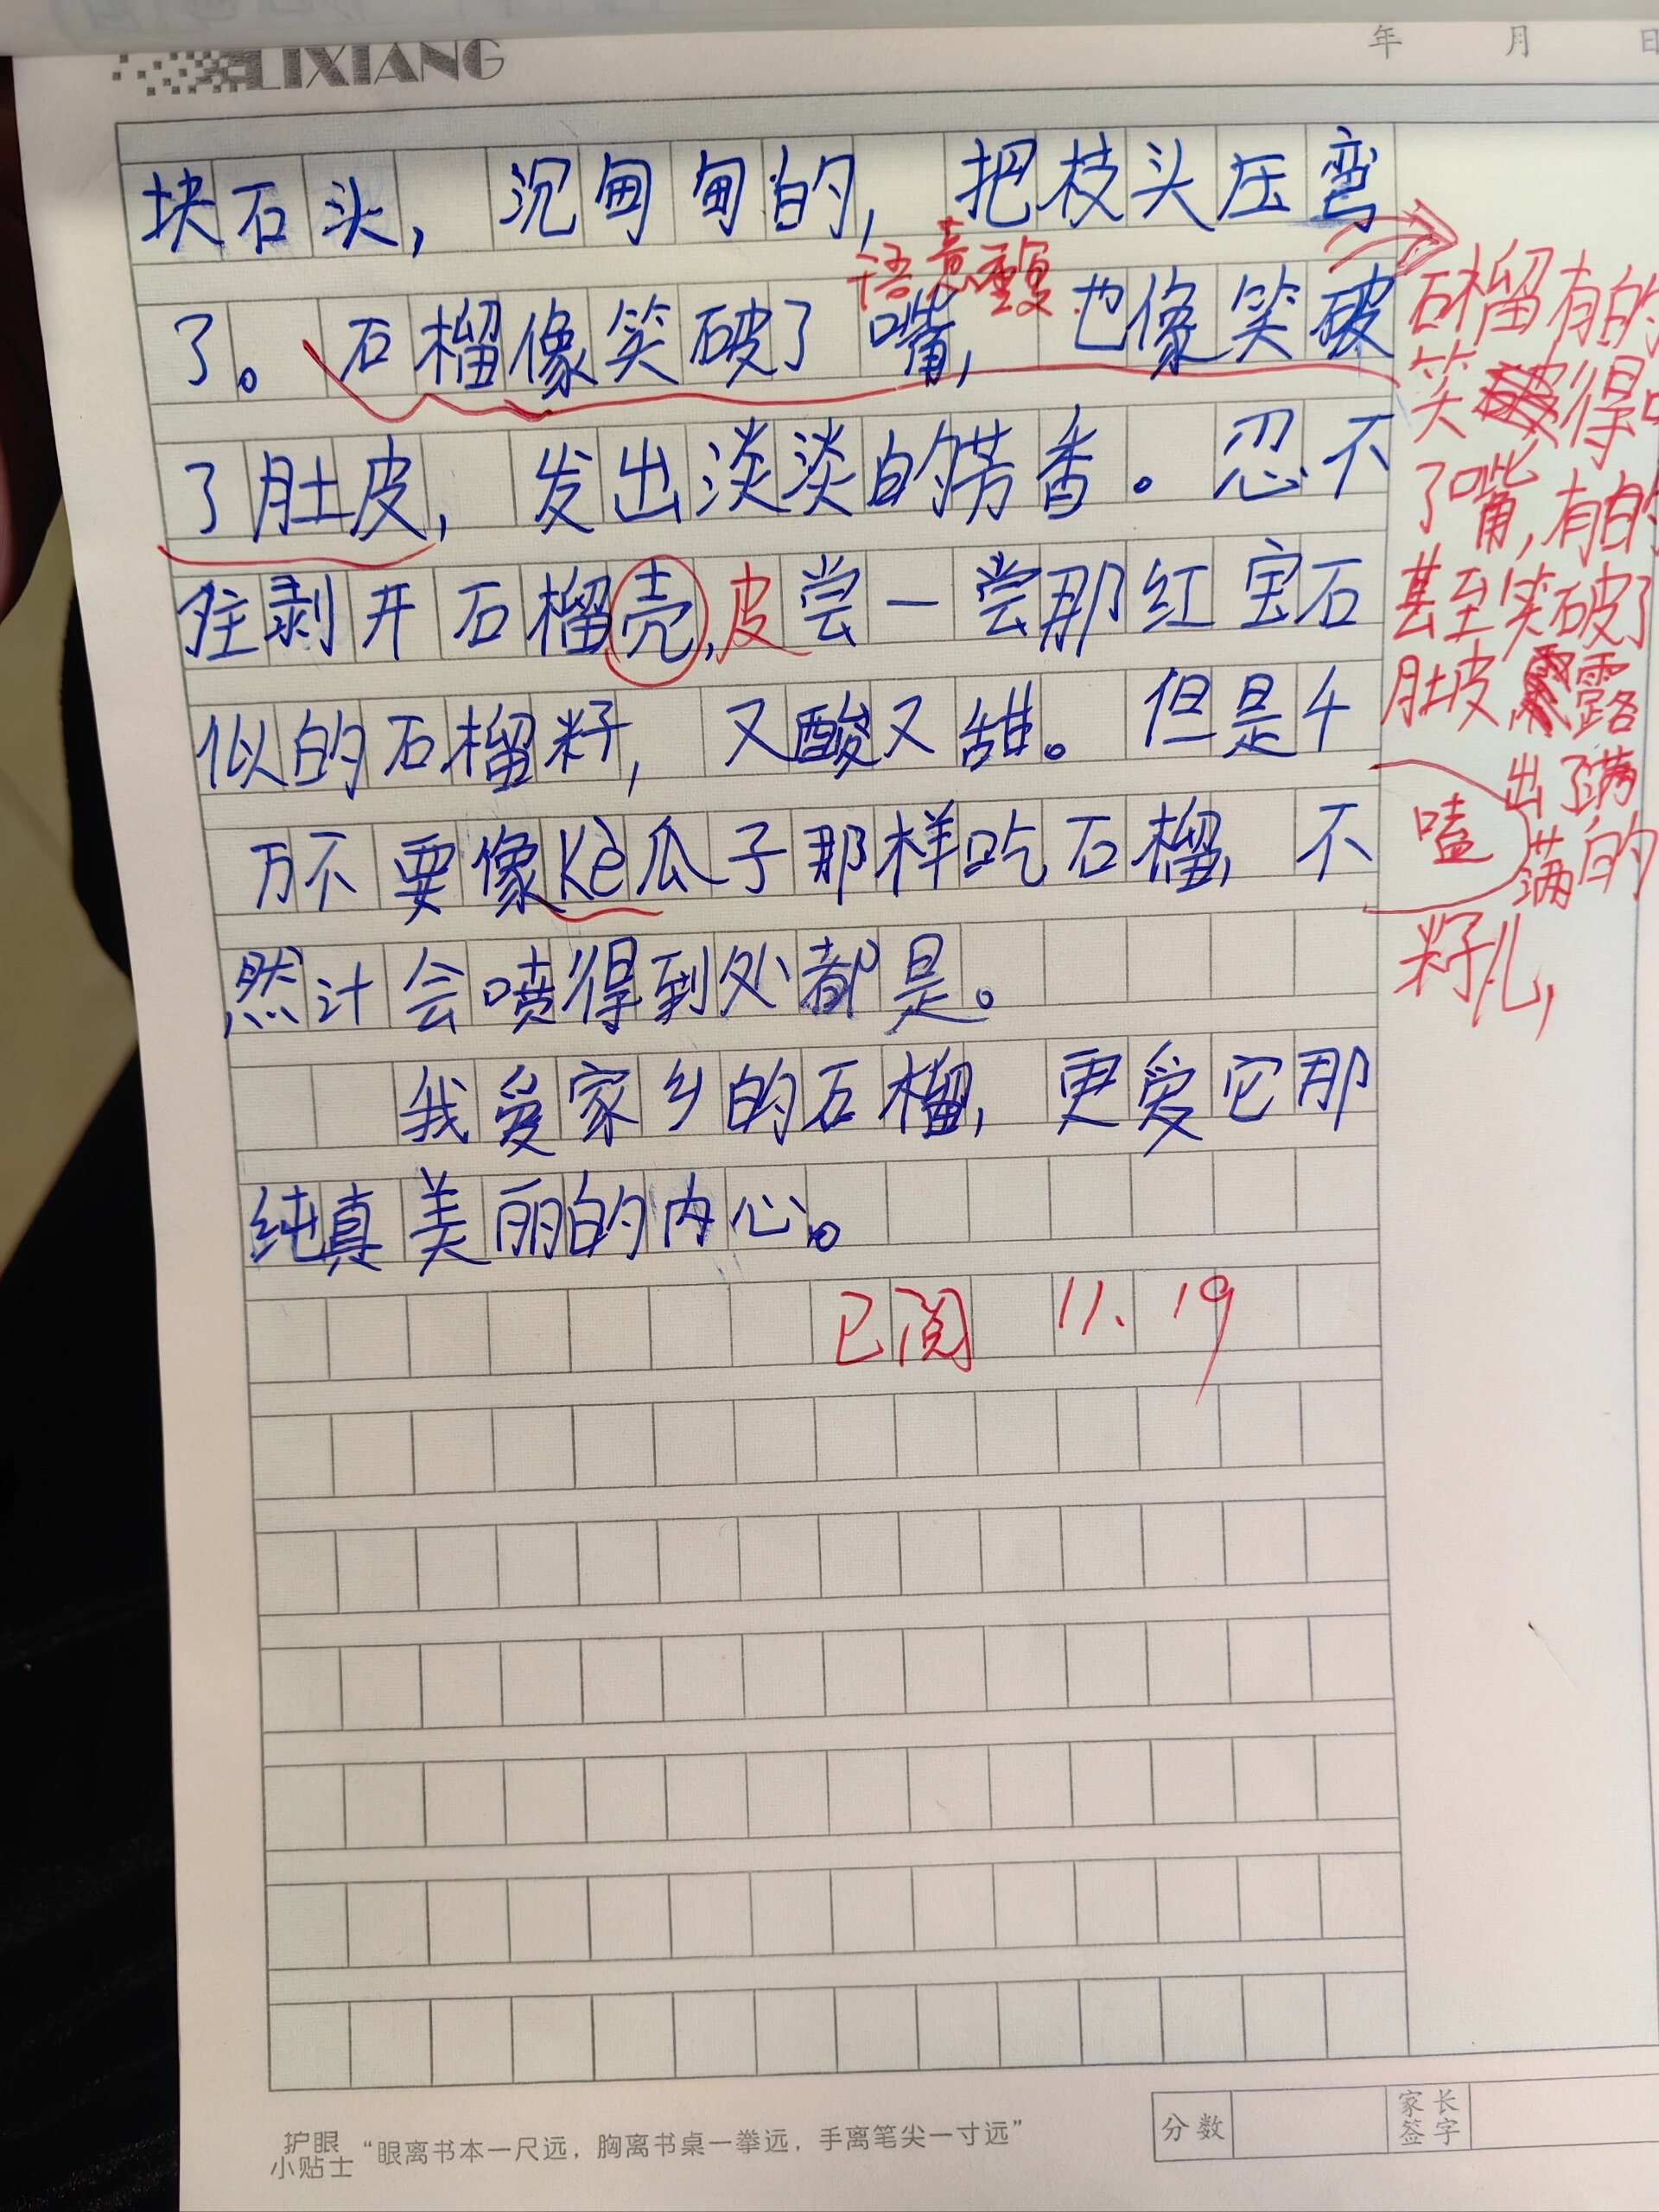 LIXIANG
年 月 日
块石头，沉甸甸的，把枝头压弯
语意重复
了。石榴像笑破了嘴，也像笑破
了肚皮，发出淡淡的芳香。忍不
住剥开石榴壳，皮尝一尝那红宝石
似的石榴籽，又酸又甜。但是千
万不要像kè瓜子那样吃石榴，不
然汁会喷得到处都是。
我爱家乡的石榴，更爱它那
纯真美丽的内心。
已阅 11.19
石榴有的
笑得
了嘴，有的
甚至笑破了
肚皮露
出了满
嗑
满的
籽儿，
护眼小贴士
“眼离书本一尺远，胸离书桌一拳远，手离笔尖一寸远”
分数
家长签字